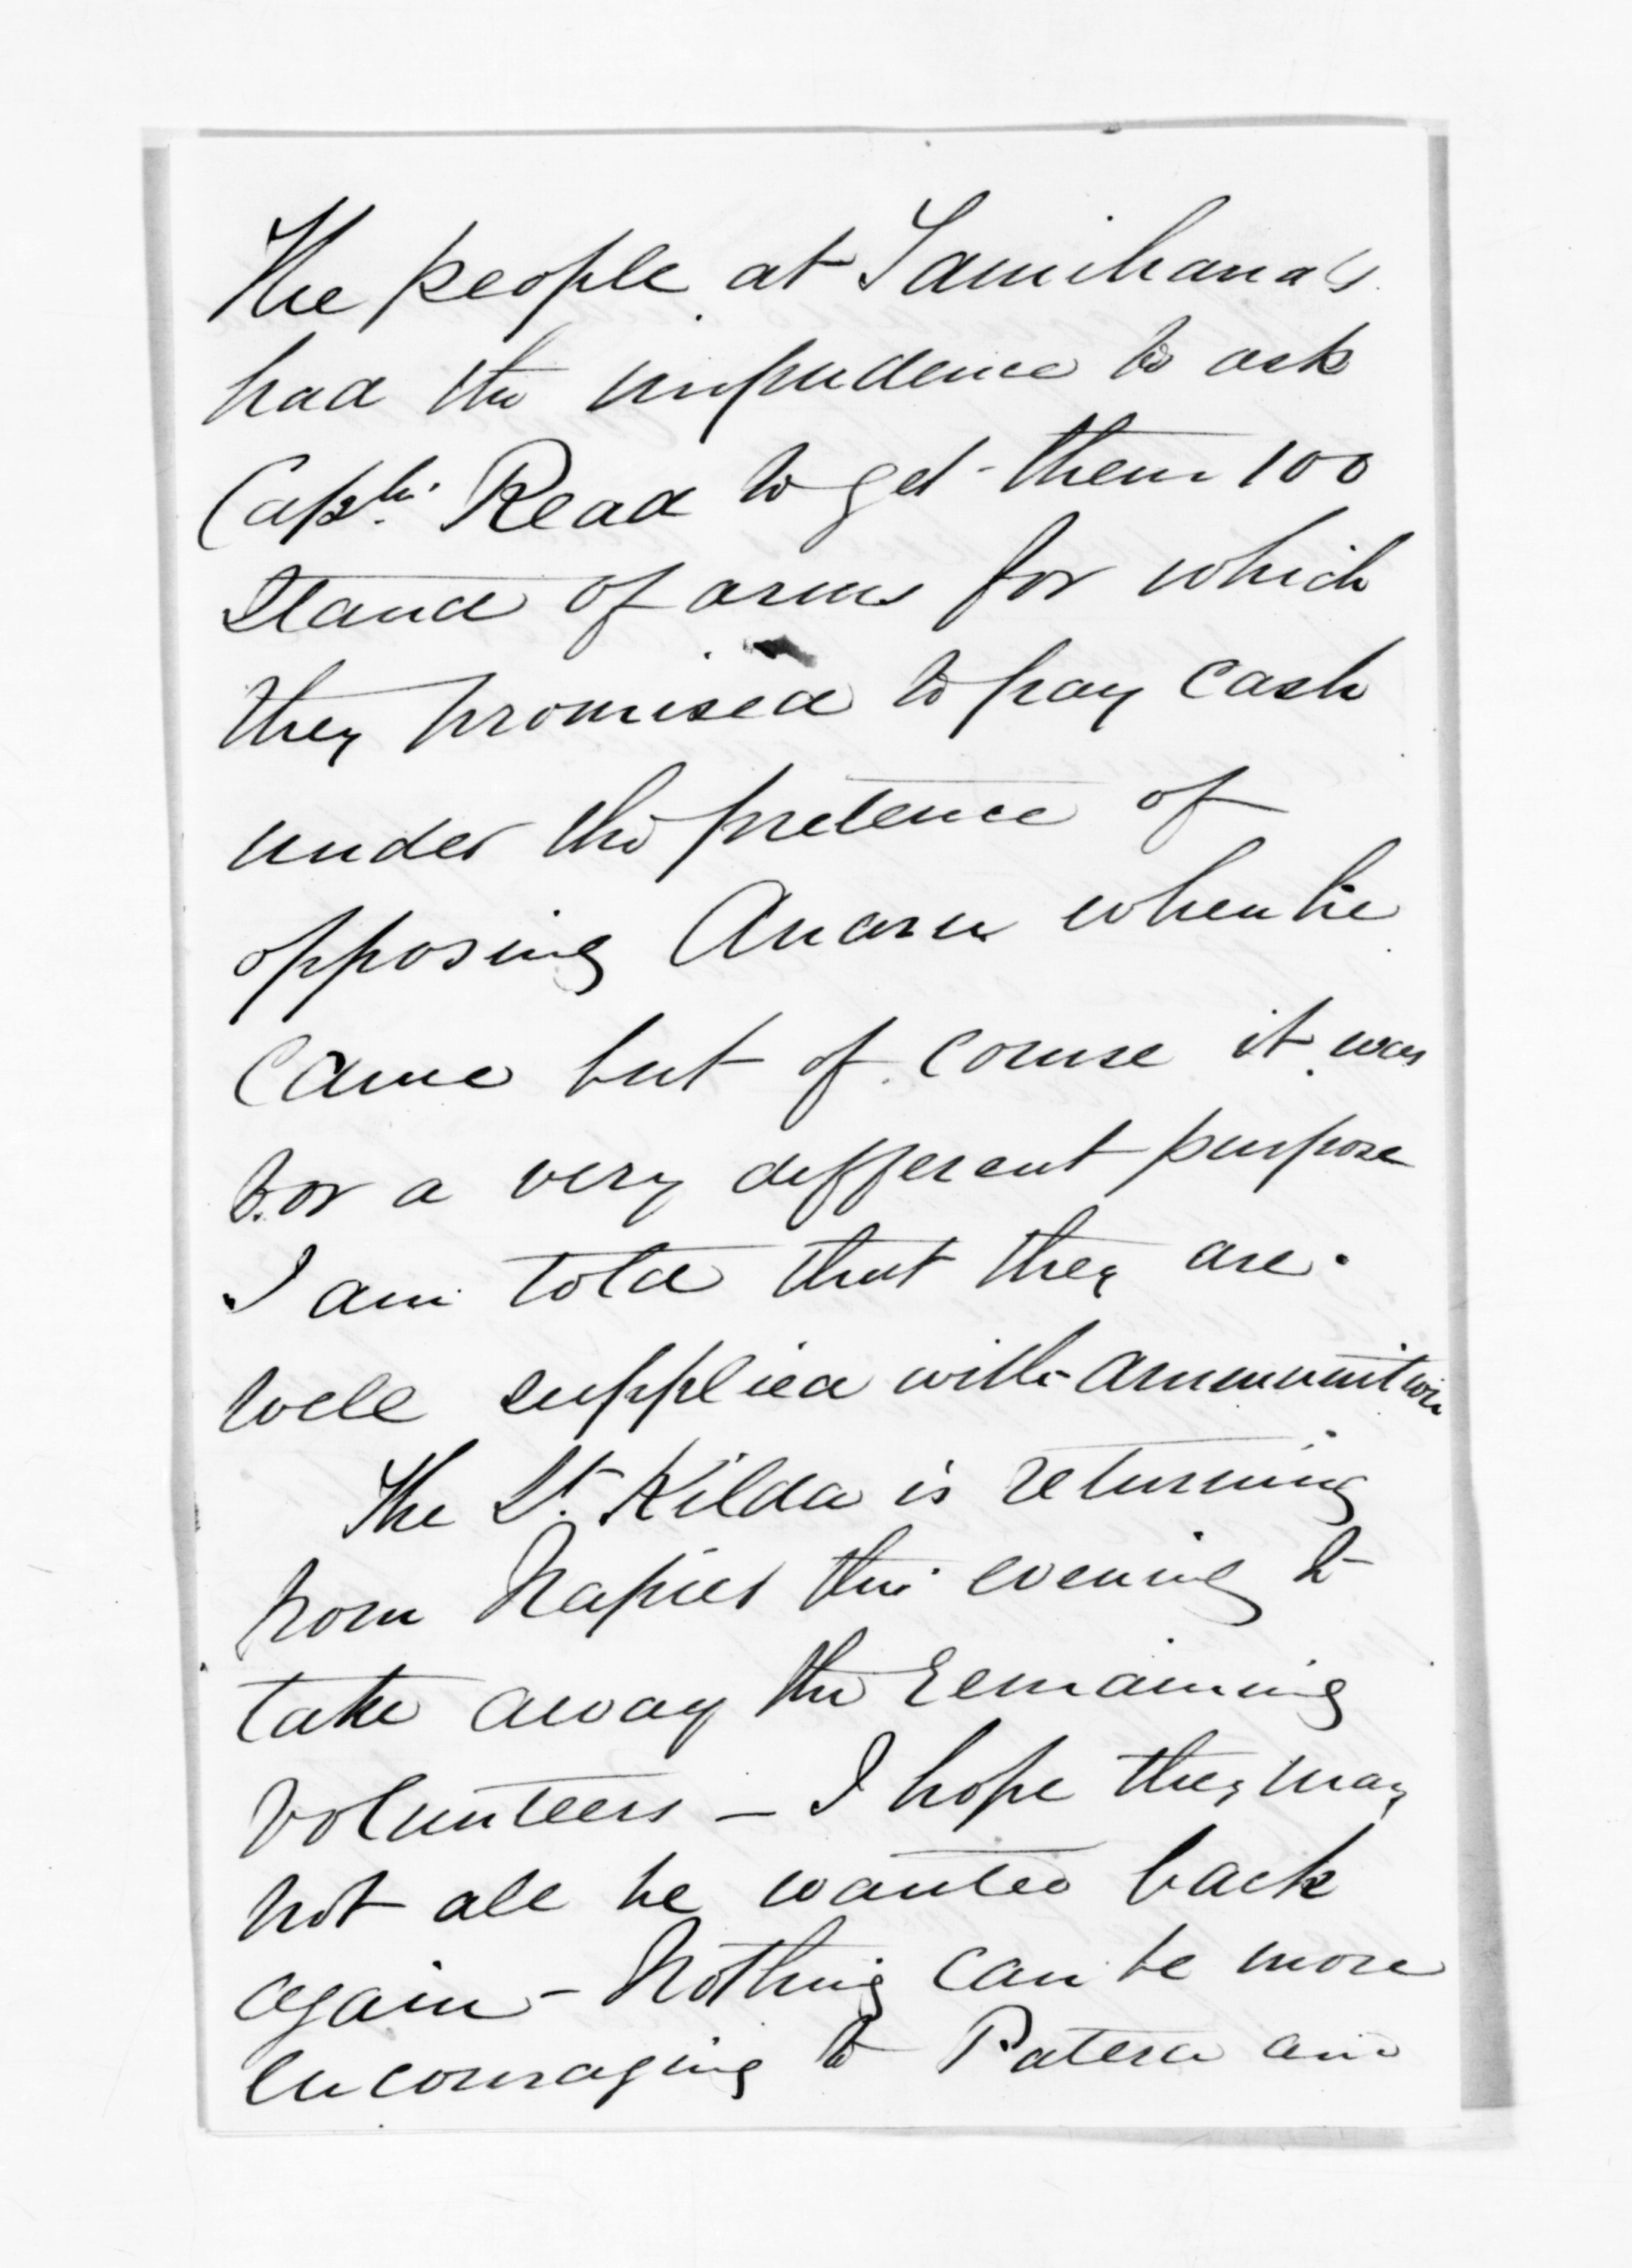 The people at Tamihana's
had the impudence to ask
Captn. Read to get them 100
stand of arms for which
they promised to pay cash
under the pretence of
opposing Anaru when he
came but of course it was
for a very different purpose
I am told that they are
well supplied with ammunition
The St. Kilda is returning
from Napier this evening to
take away the remaining
volunteers - I hope they may
not all be wanted back
again - Nothing can be more
encouraging to Patera and